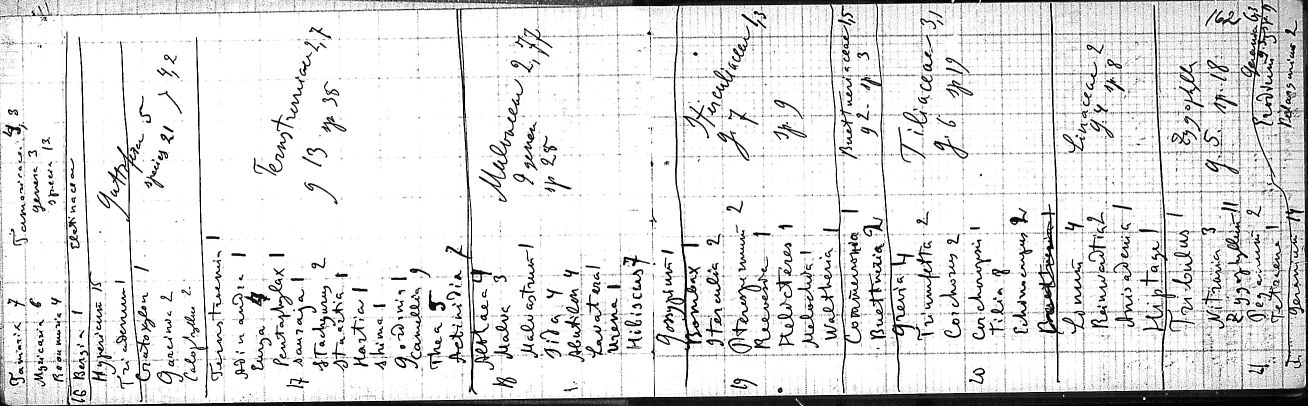 Tamarix 7
Myricaria 6
Reaumuria 4
Tamaricac. 4, 3
genera 3
species 12
16 Bergia 1
Elatinacea
Hypericum 15
Triadenum 1
Cratoxylon 1
Garcinia 2
Calophyllum 2
species 21
Ternstroemia 1
Adinandra 1
Eurya 4
Pentaphylax 1
17 Sauraja 1
Stachyurus 2
Stuartia 1
Hartia 1
Shima 1
Gordonia 1
Camellia 9
Thea 5
Actinidia 7
Ternstroemiac 2,7
g 13 sp 35
Althaea 4
18 Malva 3
Malvastrum 1
Sida 4
Abutilon 4
Lavatera 1
Urena 1
Hibiscus 7
Malvaceae 2,77
9 genera
sp 25
Gossypium 1
Bombax 1
Sterculia 2
19 Pterospermum 2
Reevesia 1
Helicteres 1
Melochia 1
Waltheria 1
Sterculiaceae 1,3
g. 7
sp. 9
Commersonia 1
Buettneria 2
Buettneriaceae 1,5
g 2 - sp 3
Grewia 4
Triumfetta 2
Corchorus 2
20 Corchoropsis 1
Tilia 8
Echinocarpus 2
Tiliaceae 3,1
g. 6 sp 19
Linum 4
Reinwardtia 2
Anisadenia 1
Linaceae 2
g 4 sp. 8
Hiptage 1
Tribulus 1
Nitraria 3
Zygophyllum 11
Peganum 2
Tetraena 1
Zygophyll
g. 5. sp. 18
162
Geranium 14
Erodium 3
Pelargonium 2